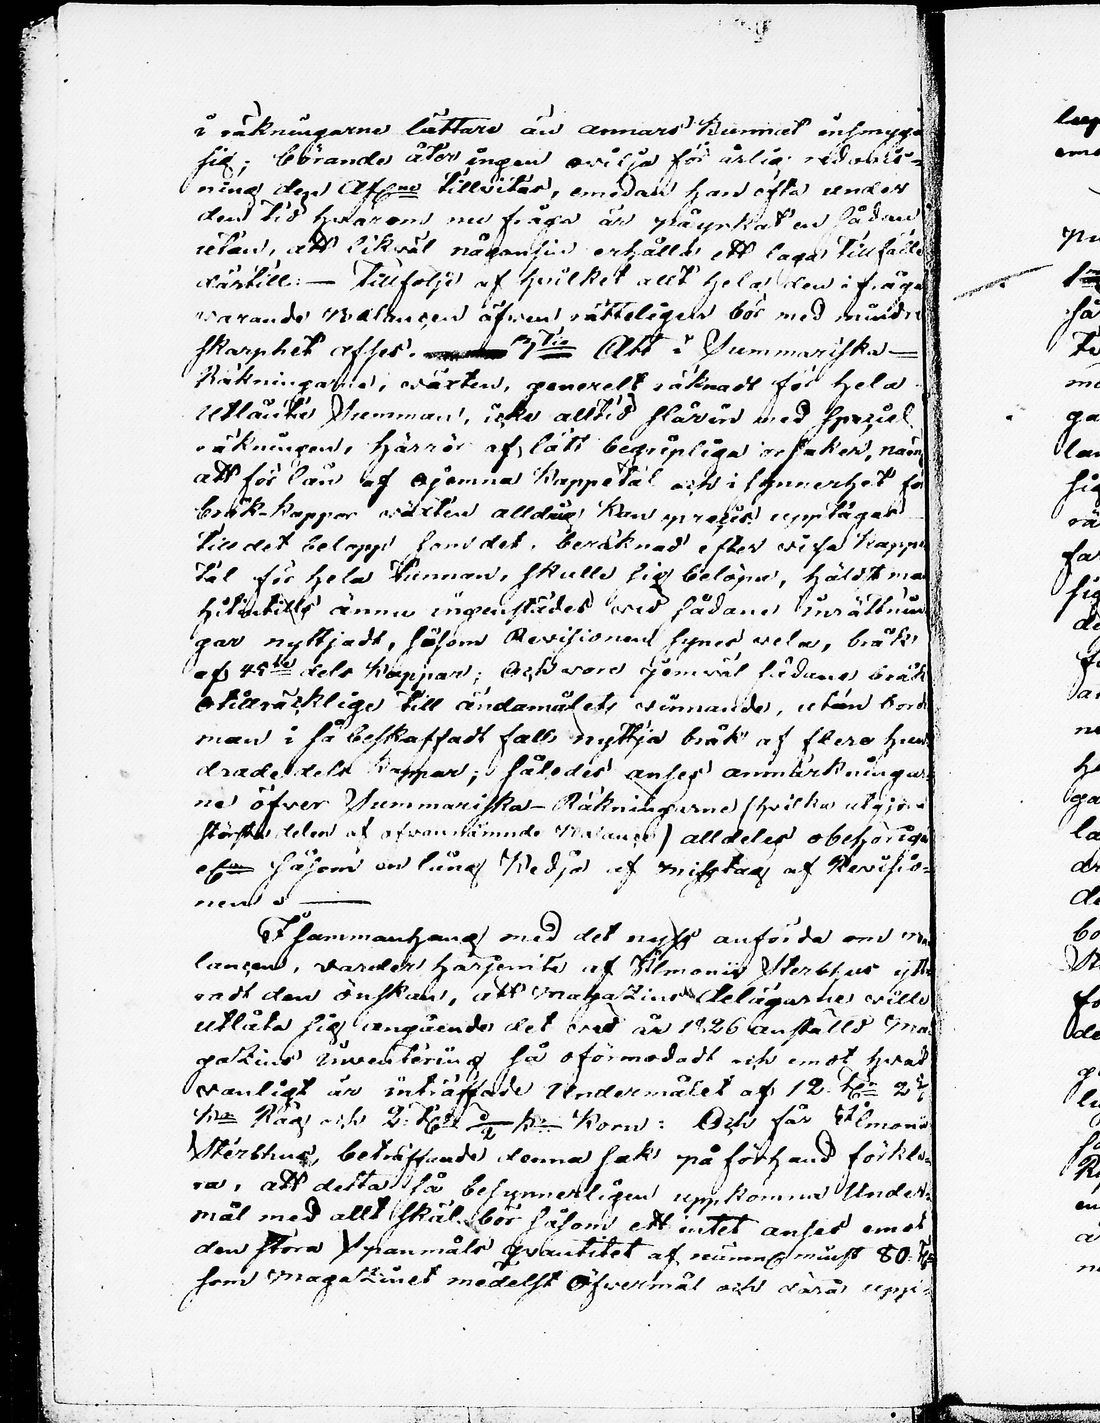 i räkningarne lättare än annars kunnat insmyga
sig; börande åter ingen ovilja för årlig redovis-
ning den Afl:ne tillvitas, emedan han ofta under
den tid hvarom nu fråga är påyrkat en sådan
utan, att likväl någonsin erhålla ett laga tillfälle
därtill: — Tillfölje af hvilket allt hela den i fråga
varande Balancen äfven rätteligen bör med mindre
skarphet afses. 3tio Att i Summariska —
Räkningarne, växten, generelt räknadt för hela
utlånta Summan, icke alltid slår in med special
räkningen, härrör af lätt begripliga orsaker, näml
att för lån af ojemna Kappetal och i synnerhet för
bråk-kappor växten alldrig kan precis upptagas
till det belopp som det, beräknad efter vissa kapp
tal för hela tunnan, skulle sig belöpa, häldst man
hitintills ännu ingenstädes vid sådane inrättnin
gar nyttjadt, såsom Revisionen synes vela, bråk
af 45te dels kappar; Och vore jemväl sådane bråk
otillräcklige till ändamålets vinnande, utan borde
man i så beskaffadt fall nyttja bråk af flere hun
drade dels kappar; således anses anmärkningar-
ne öfver Summariska Räkningarne (hvilka utgjöra
största delen af ofvannämnde Balance) alldeles obehörige
såsom en lång Kedja af misstag af Revisio-
nen. —
I sammanhang med det nyss anförda om Ba
lancen, varder härjemte af Ilmonis Sterbhus ytt
radt den önskan, att Magazins Delägarne ville
utlåta sig angående det vid år 1826 anställd Ma
gazins inventering så oförmodadt och emot hvad
vanligt är inträffade Undermålet af 12 T:r 2
K:r Råg och 2 T:r K:r Korn: Och får Ilmonis
Sterbhus, beträffande denna sak på förhand förkla
ra, att detta så besynnerligen uppkomna Under-
mål med allt skäl bör såsom ett intet anses emot
den stora Spanmåls quantitet af minst 80 T:r
som Magazinet medelst Öfvermål och däraf upp-